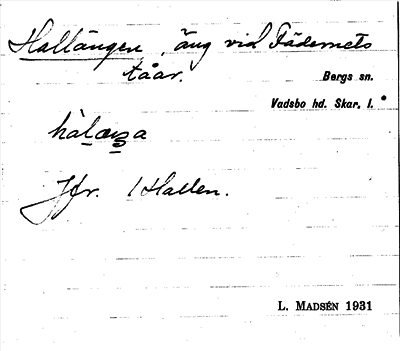 Hallängen, äng vid Fädernets
tåar.
Bergs sn.
Vadsbo hd. Skar. l.
Jfr. 1 Hallen.
L. MADSÉN 1931